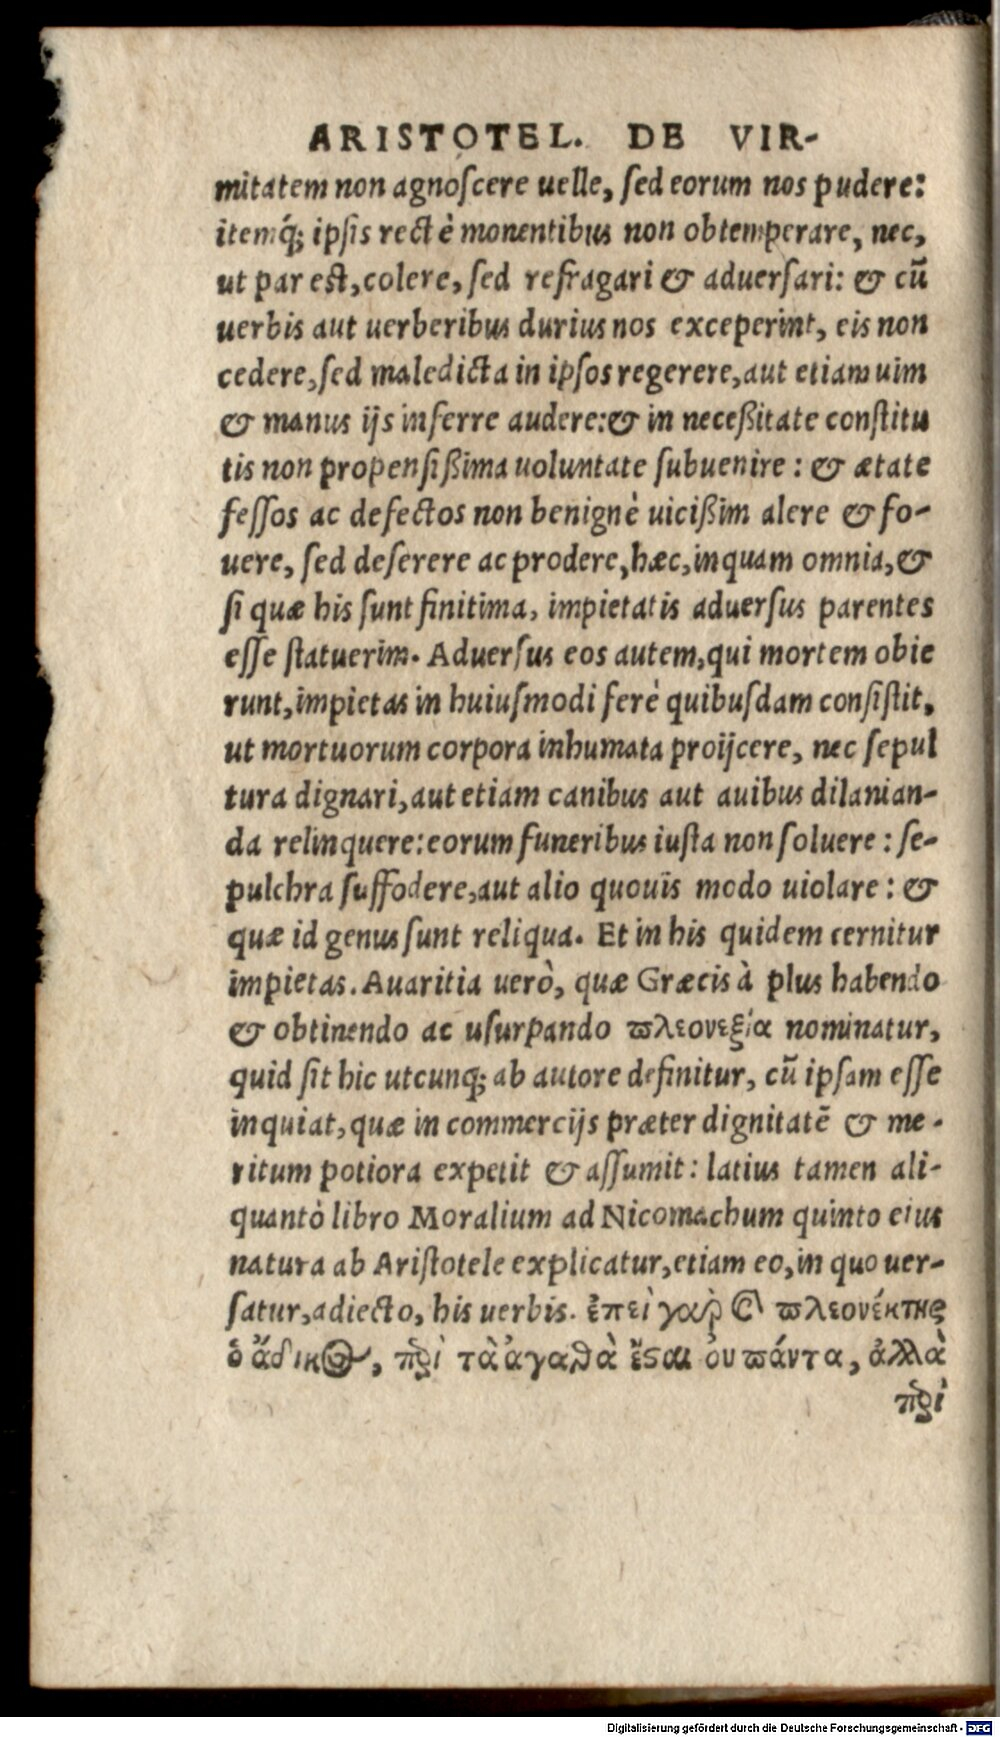 ARISTOTEL. DE VIR-
mitatem non agnoscere uelle, sed eorum nos pudere:
itemq́; ipsis rectè monentibus non obtemperare, nec,
ut par est, colere, sed refragari & aduersari: & cũ
uerbis aut uerberibus durius nos exceperint, eis non
cedere, sed maledicta in ipsos regerere, aut etiam uim
& manus ijs inferre audere: & in neceßitate constitu
tis non propensißima uoluntate subuenire : & ætate
fessos ac defectos non benignè uicißim alere & fo-
uere, sed deserere ac prodere, hæc, inquam omnia, &
si quæ his sunt finitima, impietatis aduersus parentes
esse statuerim. Aduersus eos autem, qui mortem obie
runt, impietas in huiusmodi ferè quibusdam consistit,
ut mortuorum corpora inhumata proijcere, nec sepul
tura dignari, aut etiam canibus aut auibus dilanian-
da relinquere: eorum funeribus iusta non soluere : se-
pulchra suffodere, aut alio quouis modo uiolare : &
quæ id genus sunt reliqua. Et in his quidem cernitur
impietas. Auaritia uerò, quæ Græcis à plus habendo
& obtinendo ac usurpando ϖλεονεξία nominatur,
quid sit hic utcunq; ab autore definitur, cũ ipsam esse
inquiat, quæ in commercijs præter dignitatẽ & me-
ritum potiora expetit & assumit: latius tamen ali-
quantò libro Moralium ad Nicomachum quinto eius
natura ab Aristotele explicatur, etiam eo, in quo uer-
satur, adiecto, his uerbis. ἐπεὶ γαρ̀ ϗ̀ ϖλεονέκτης
ὁ ἄδικος, περὶ τὰ ἀγαθὰ ἔσαι ου ϖάντα, ἀλλὰ
περὶ
Digitalisierung gefördert durch die Deutsche Forschungsgemeinschaft - DFG